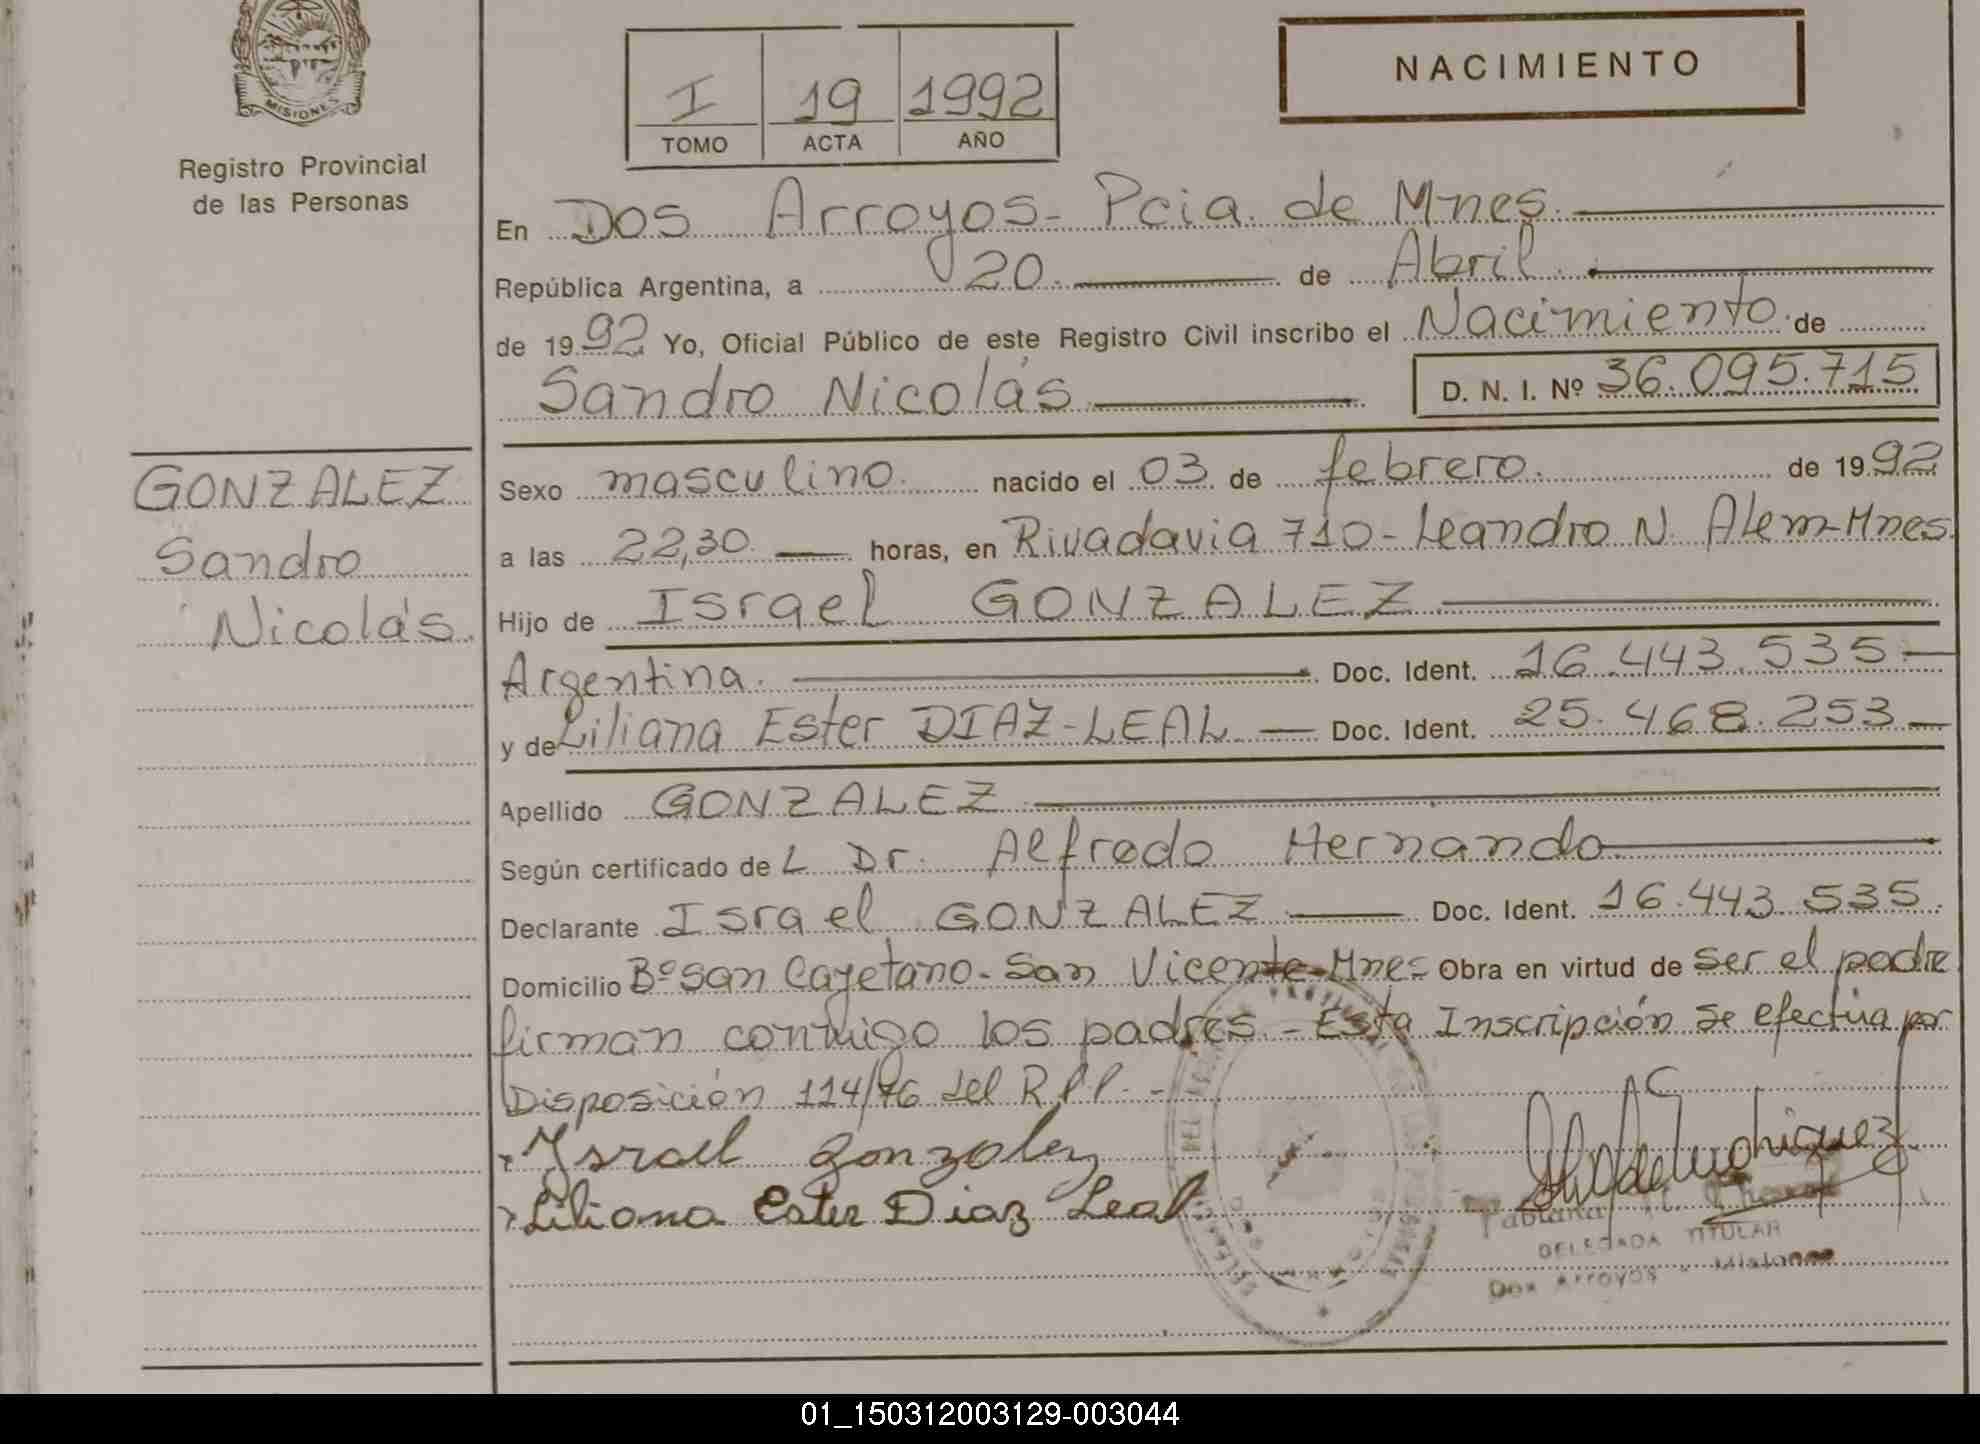 MISIONES
Registro Provincial
de las Personas
I 19 1992
TOMO ACTA AÑO
NACIMIENTO
En Dos Arroyos - Pcia. de Mnes.
República Argentina, a 20 de Abril
de 1992 Yo, Oficial Público de este Registro Civil inscribo el Nacimiento de
Sandro Nicolás D. N. I. Nº 36.095.715
GONZALEZ
Sandro
Nicolás
Sexo masculino. nacido el 03 de febrero. de 1992
a las 22,30 horas, en Rivadavia 710 - Leandro N. Alem - Mnes.
Hijo de Israel GONZALEZ
Argentina. Doc. Ident. 16.443.535
y de Liliana Ester DIAZ - LEAL Doc. Ident. 25.468.253
Apellido GONZALEZ
Según certificado de L Dr. Alfredo Hernando
Declarante Israel GONZALEZ Doc. Ident. 16.443.535
Domicilio Bº San Cayetano - San Vicente - Mnes Obra en virtud de ser el padre
firman conmigo los padres - Esta Inscripción se efectúa por
Disposición 114/76 del R.P.P. -
Israel Gonzalez
Liliana Ester Diaz Leal
Fabiana
DELEGADA TITULAR
Dos Arroyos - Misiones
01_150312003129-003044